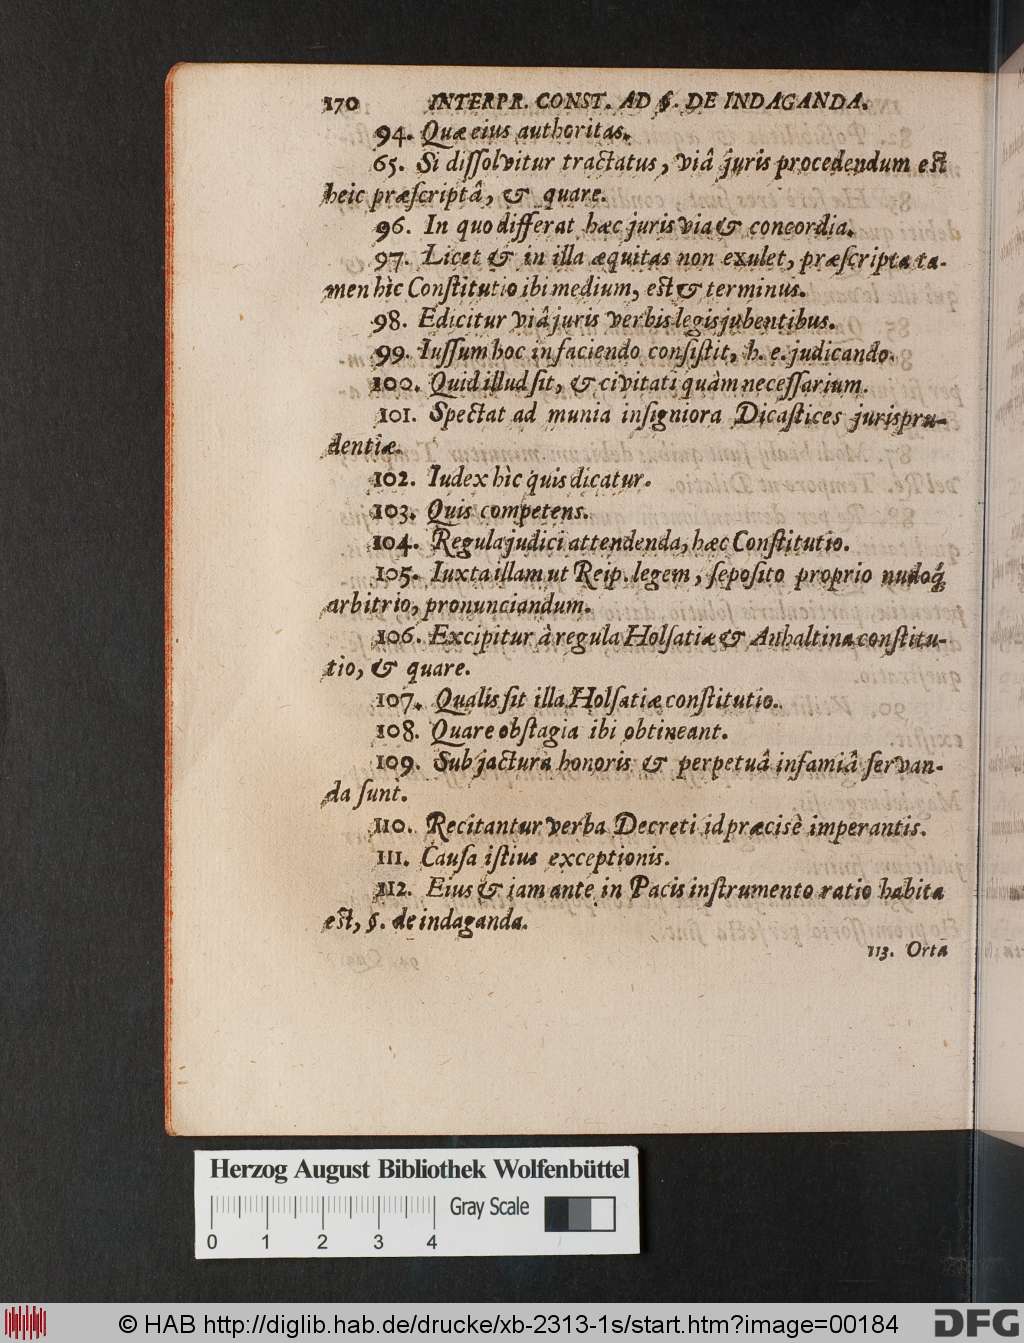 170 INTERPR. CONST. AD §. DE INDAGANDA.
94. Quæ eius authoritas.
65. Si dissolvitur tractatus, viâ juris procedendum est
heic præscriptâ, & quare.
96. In quo differat hæc juris via & concordia.
97. Licet & in illa æquitas non exulet, præscripta ta-
men hìc Constitutio ibi medium, est & terminus.
98. Edicitur viâ juris verbis legis jubentibus.
99. Iussum hoc in faciendo consistit, h. e. judicando.
100. Quid illud sit, & civitati quàm necessarium.
101. Spectat ad munia insigniora Dicastices jurispru-
dentiæ.
102. Iudex hìc quis dicatur.
103. Quis competens.
104. Regula judici attendenda, hæc Constitutio.
105. Iuxta illam ut Reip. legem, seposito proprio nudoq́
arbitrio, pronunciandum.
106. Excipitur à regula Holsatiæ & Anhaltina constitu-
tio, & quare.
107. Qualis sit illa Holsatiæ constitutio.
108. Quare obstagia ibi obtineant.
109. Sub jactura honoris & perpetuâ infamiâ servan-
da sunt.
110. Recitantur verba Decreti id præcisè imperantis.
111. Causa istius exceptionis.
112. Eius & jam ante in Pacis instrumento ratio habita
est, §. de indaganda.
113. Orta
Herzog August Bibliothek Wolfenbüttel
Gray Scale
0 1 2 3 4
© HAB http://diglib.hab.de/drucke/xb-2313-1s/start.htm?image=00184
DFG